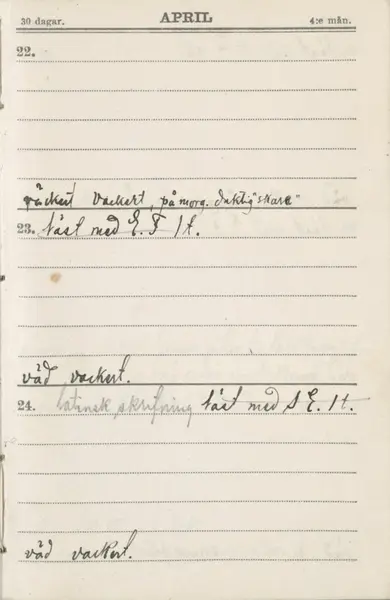 30 dagar. APRIL 4:e mån.
22.
vackert, på morg. duktig "skare"
23. läst med E. F 1 t.
väd vackert.
24. latinsk skrifning läst med S E. 1 t.
väd vackert.